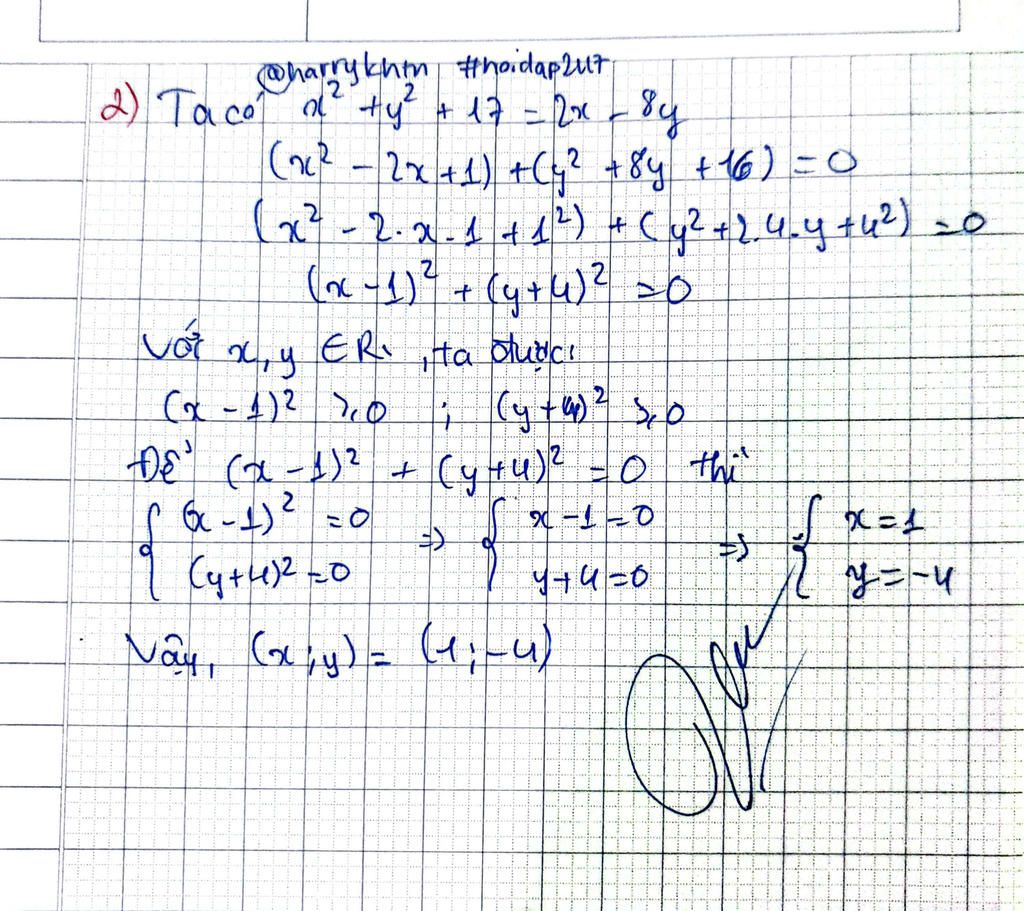 @harrykhtn #hoidap247
2) Ta có x² + y² + 17 = 2x - 8y
(x² - 2x + 1) + (y² + 8y + 16) = 0
(x² - 2·x·1 + 1²) + (y² + 2.4.y + 4²) = 0
(x - 1)² + (y + 4)² = 0
Với x, y ∈ R, ta được:
(x - 1)² ≥ 0 ; (y + 4)² ≥ 0
Để (x - 1)² + (y + 4)² = 0 thì
{ (x - 1)² = 0 => { x - 1 = 0 => { x = 1
(y + 4)² = 0 y + 4 = 0 y = -4
Vậy, (x ; y) = (1 ; -4)